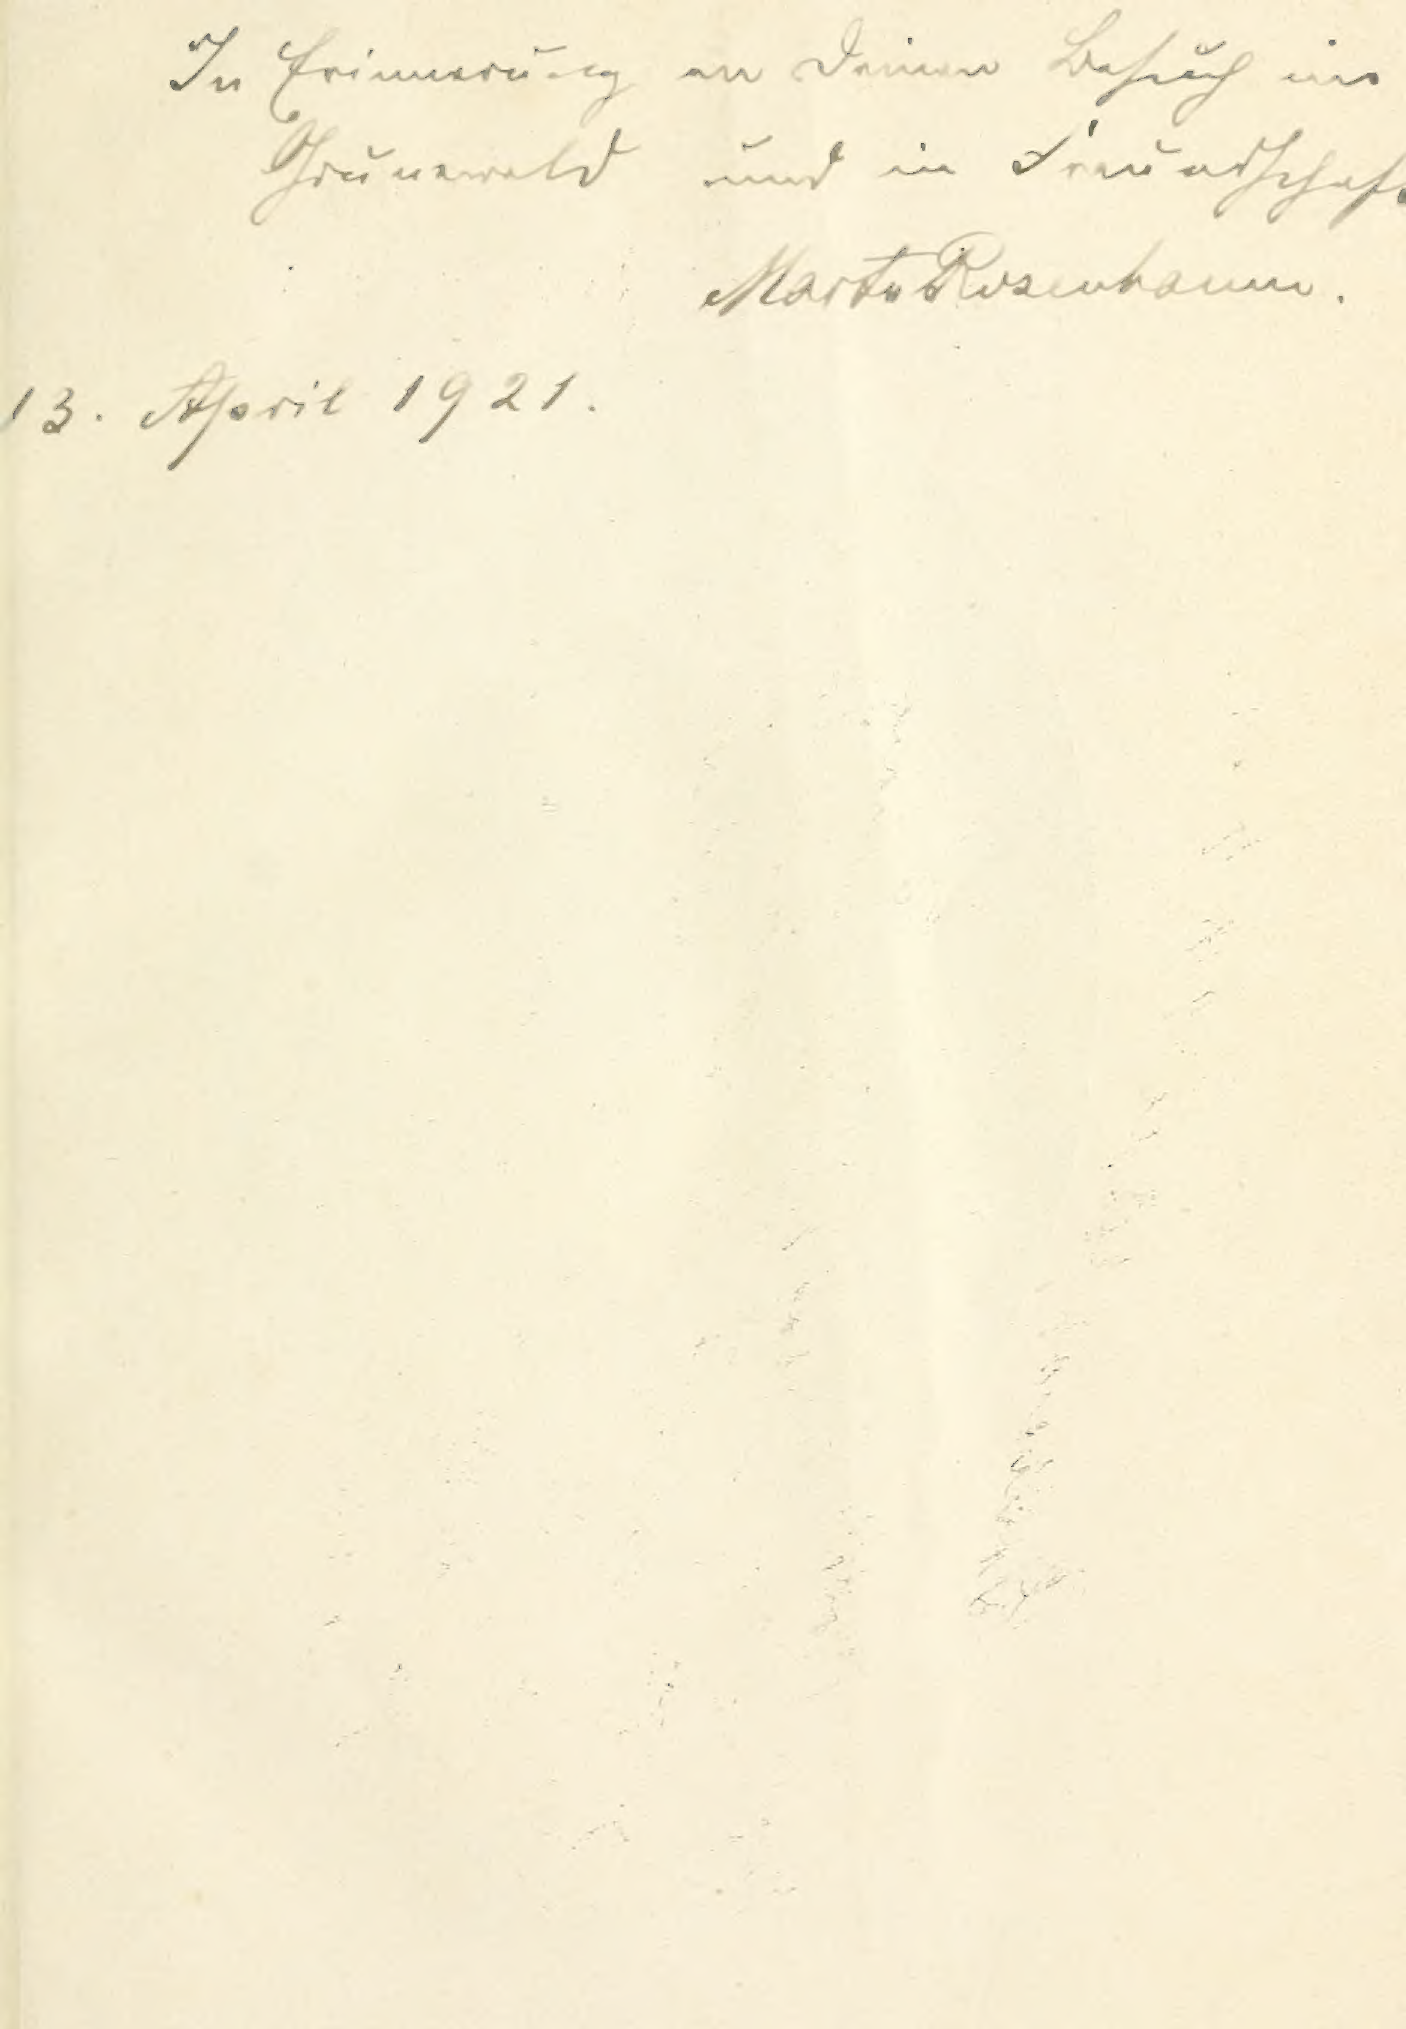 In Erinnerung an Deinen Besuch im
Grunewald und in Freundschaft
Rosenbaum.
13. April 1921.